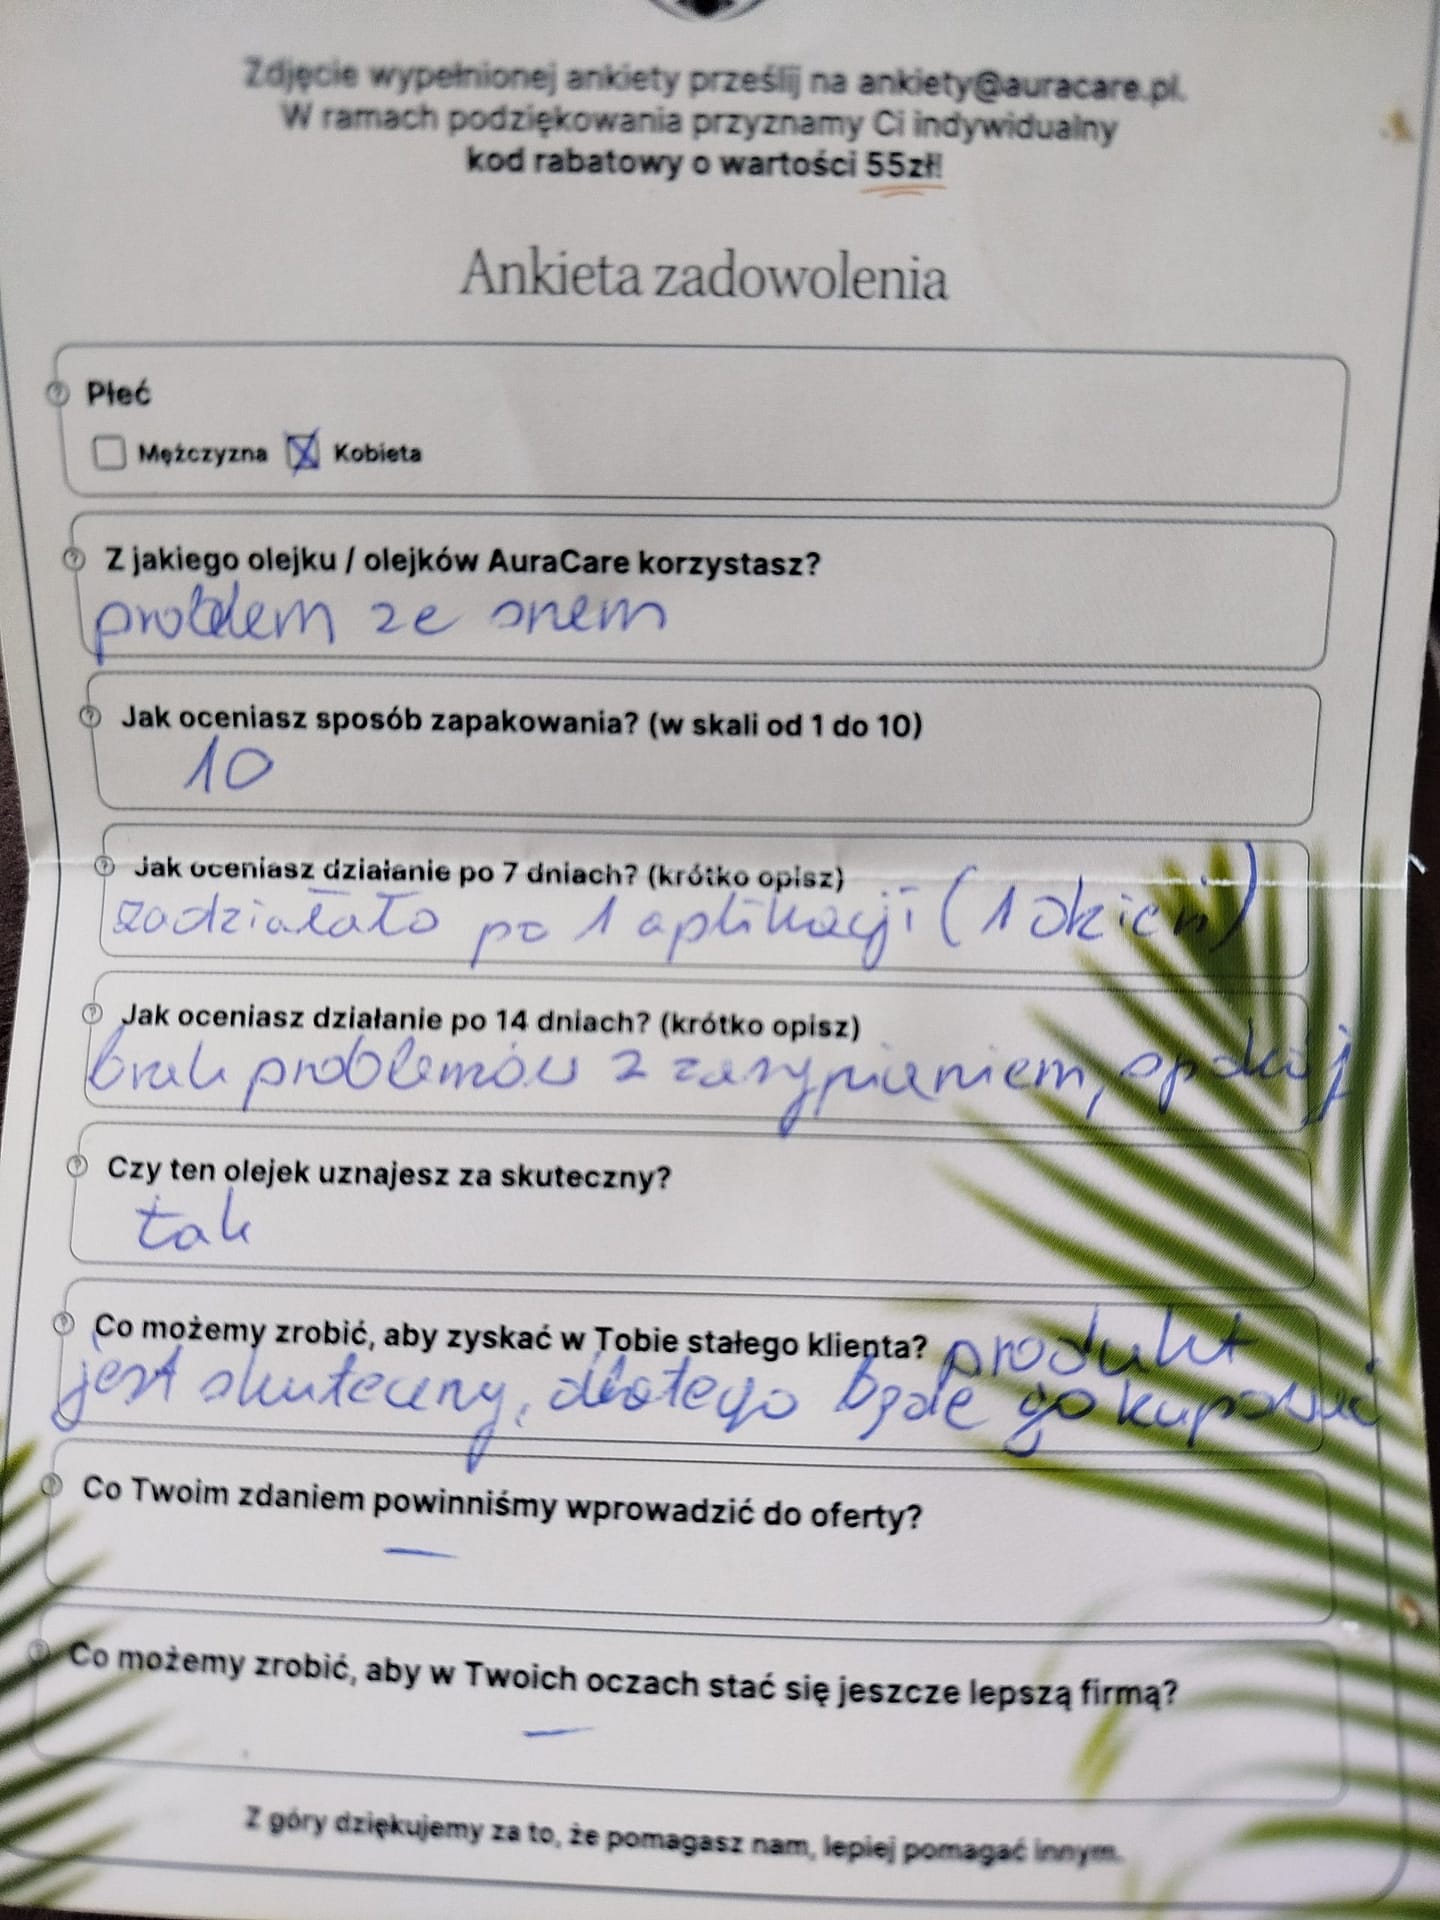 Zdjęcie wypełnionej ankiety prześlij na ankiety@auracare.pl.
W ramach podziękowania przyznamy Ci indywidualny
kod rabatowy o wartości 55zł!
Ankieta zadowolenia
Płeć
Mężczyzna Kobieta
Z jakiego olejku / olejków AuraCare korzystasz?
problem ze snem
Jak oceniasz sposób zapakowania? (w skali od 1 do 10)
10
Jak oceniasz działanie po 7 dniach? (krótko opisz)
zadziałało po 1 aplikacji (1 dzień)
Jak oceniasz działanie po 14 dniach? (krótko opisz)
brak problemów z zasypianiem, spokój
Czy ten olejek uznajesz za skuteczny?
tak
Co możemy zrobić, aby zyskać w Tobie stałego klienta? produkt
jest skuteczny, dlatego będę go kupować
Co Twoim zdaniem powinniśmy wprowadzić do oferty?
—
Co możemy zrobić, aby w Twoich oczach stać się jeszcze lepszą firmą?
—
Z góry dziękujemy za to, że pomagasz nam, lepiej pomagać innym.